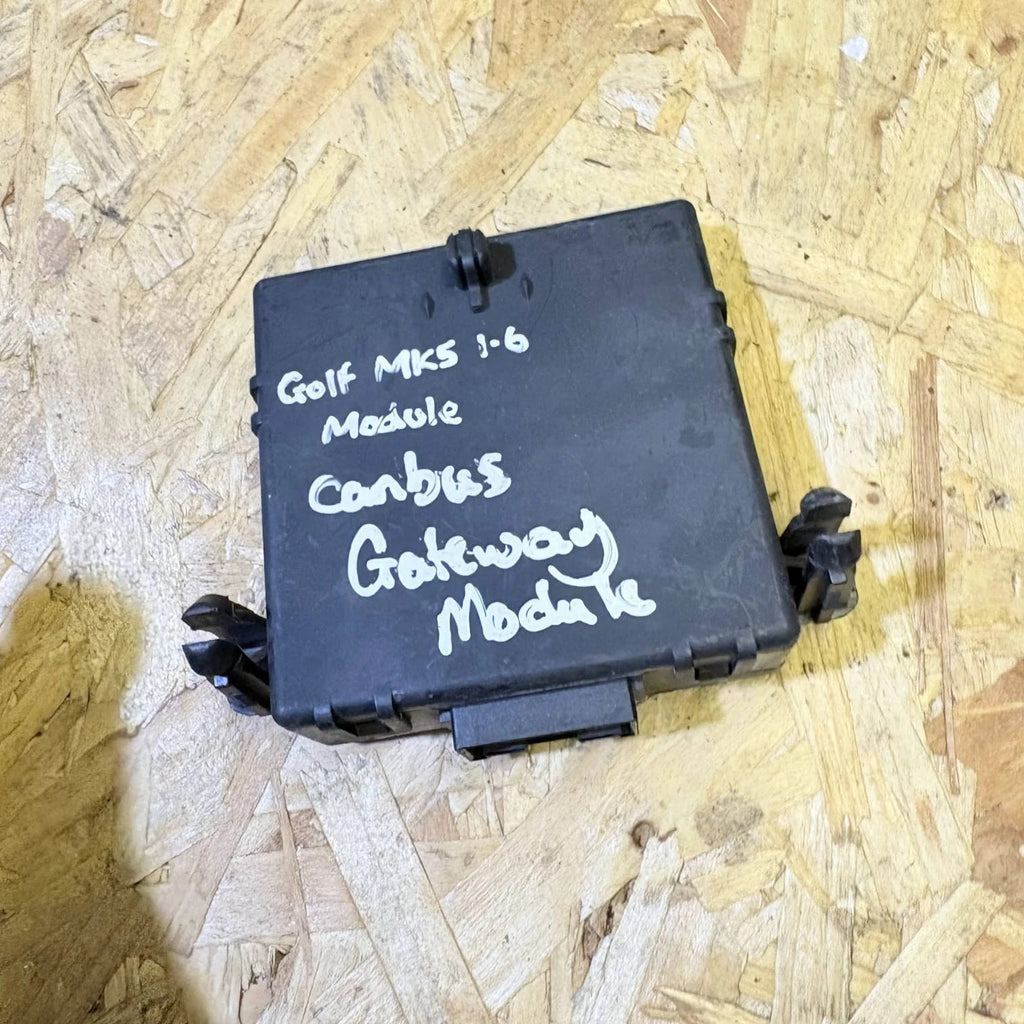 Golf MK5 1-6
Module
canbus
Gateway
Module